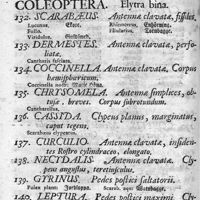 COLEOPTERA. Elytra bina.
132. SCARABÆUS. Antennæ clavatæ, fissiles.
133. DERMESTES. Antennæ clavatæ, perfo-
liatæ.
Cantharis fasciata.
134. COCCINELLA. Antennæ clavatæ. Corpus
hemisphæricum.
Coccinella Mariæ
135. CHRYSOMELA. Antennæ simplices, ob-
tusæ, breves. Corpus subrotundum.
Cantharellus.
136. CASSIDA. Clypeus planus, marginatus,
caput tegens.
Scarabæus clypeatus.
137. CURCULIO. Antennæ clavatæ, insiden-
tes Rostro cylindraceo, elongato.
138. NECYDALIS. Antennæ clavatæ. Cly-
peus angustus, teretiusculus.
139. GYRINUS. Pedes postici saltatorii.
Pulex plant:
140. LEPTURA. Pedes postici maximi. Cly-